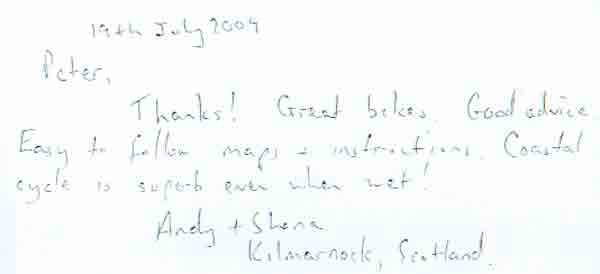 19th July 2009
Peter,
Thanks! Great bikes. Good advice
Easy to follow maps + instructions. Coastal
cycle is superb even when wet!
Andy + Shena
Kilmarnock, Scotland.